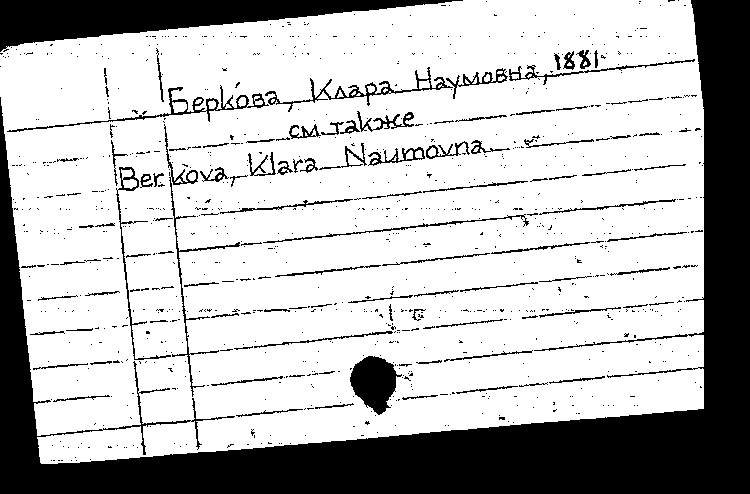 Беркова, Клара Наумовна, 1881-
см. также
Berkova, Klara Naumovna.